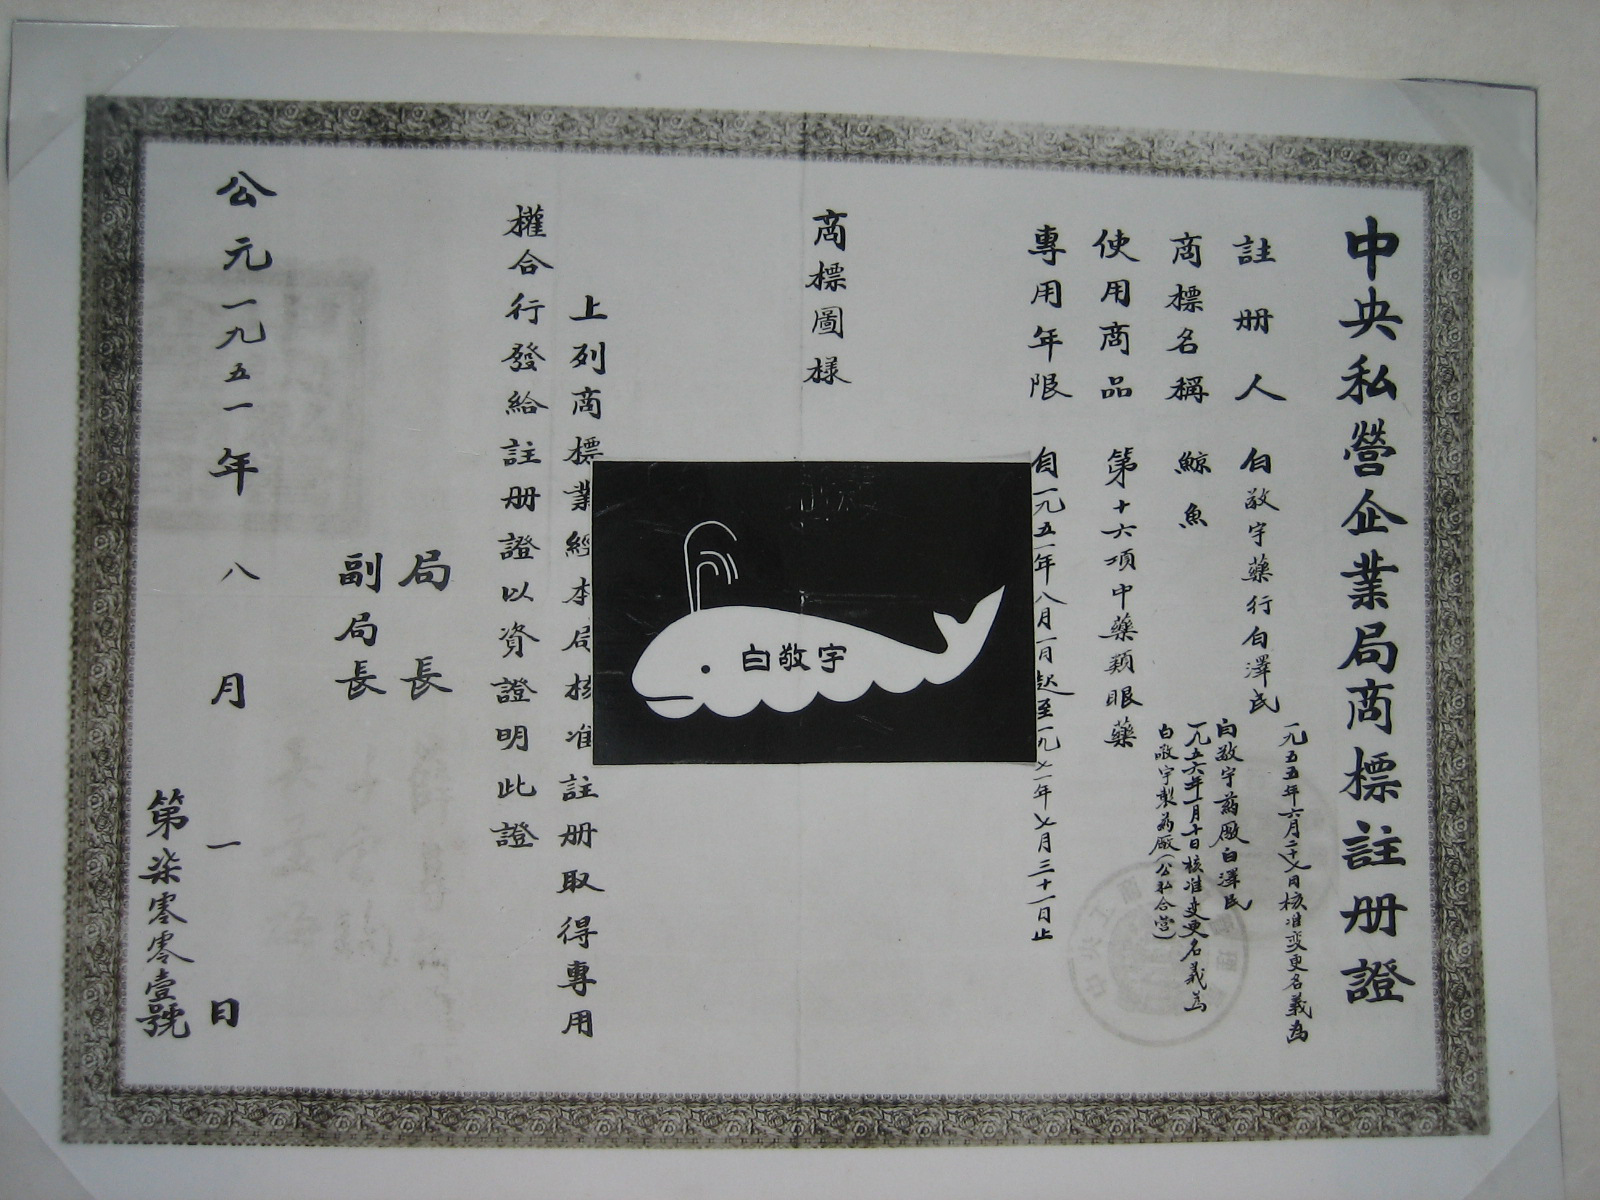 中央私營企業局商標註册證
註册人 白敬宇藥行白澤民
一九五五年六月二十七日核准變更名義為
白敬宇葯廠白澤民
一九五六年一月十日核准变更名義為
白敬宇製葯廠(公私合营)
商標名稱 鯨魚
使用商品 第十六項中藥類眼藥
專用年限 自一九五一年八月一日起至一九七一年七月三十一日止
商標圖樣
白敬宇
上列商標業經本局核准註册取得專用
權合行發給註册證以資證明此證
局長
副局長
公元一九五一年八月一日
第柒零零壹號